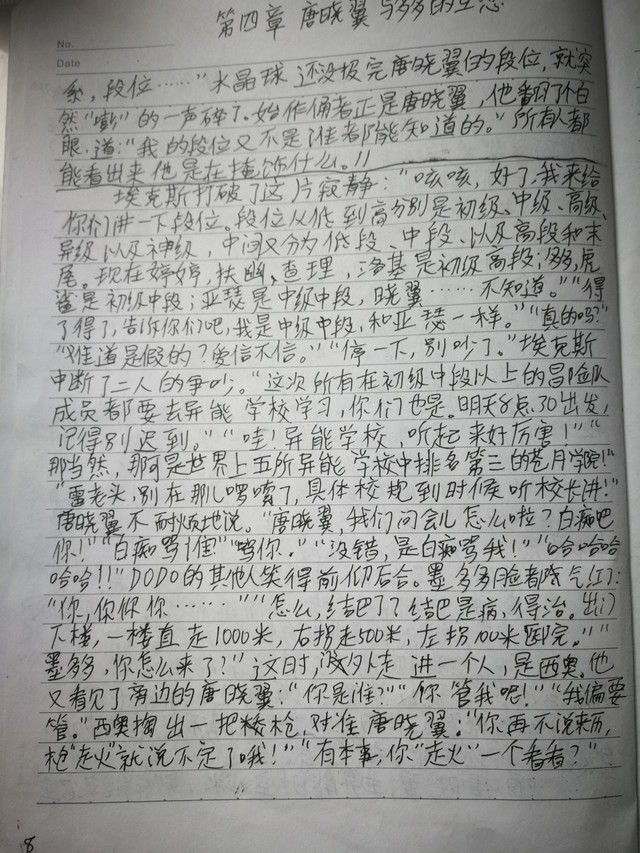 第四章 唐晓翼与多多的互怼
No.
Date
系，段位……”水晶球还没报完唐晓翼的段位，就突
然“嘭”的一声碎了。始作俑者正是唐晓翼，他翻了个白
眼，道：“我的段位又不是谁都能知道的。”所有人都
能看出来他是在掩饰什么。//
埃克斯打破了这片寂静：“咳咳，好了，我来给
你们讲一下段位。段位从低到高分别是初级、中级、高级、
异级以及神级，中间又分为低段、中段、以及高段和末
尾。现在婷婷，扶幽，查理，洛基是初级高段；多多，虎
鲨是初级中段；亚瑟是中级中段，晓翼……不知道。”“得
了得了，告诉你们吧，我是中级中段，和亚瑟一样。”“真的吗？”
“难道是假的？爱信不信。”“停一下，别吵了。”埃克斯
中断了二人的争吵。“这次所有在初级中段以上的冒险队
成员都要去异能学校学习，你们也是。明天8点30出发，
记得别迟到。”“哇！异能学校，听起来好厉害！”“
那当然，那可是世界上五所异能学校中排名第三的苍月学院！”
“雷老头，别在那儿啰嗦了，具体校规到时候听校长讲！”
唐晓翼不耐烦地说。“唐晓翼，我们问会儿怎么啦？白痴吧
你！”“白痴骂谁？”“骂你。”“没错，是白痴骂我！”“哈哈哈
哈哈！！”DODO的其他人笑得前仰后合。墨多多脸都气红了：
“你，你你你……”“怎么，结巴了？结巴是病，得治。出门
下楼，一楼直走1000米，右拐走500米，左拐100米医院。”“
墨多多，你怎么来了？”这时，门外走进一个人，是西奥。他
又看见了旁边的唐晓翼：“你是谁？”“你管我呢！”“我偏要
管。”西奥掏出一把枪，对准唐晓翼：“你再不说来历，
枪“走火”就说不定了哦！”“有本事，你“走火”一个看看？”
8